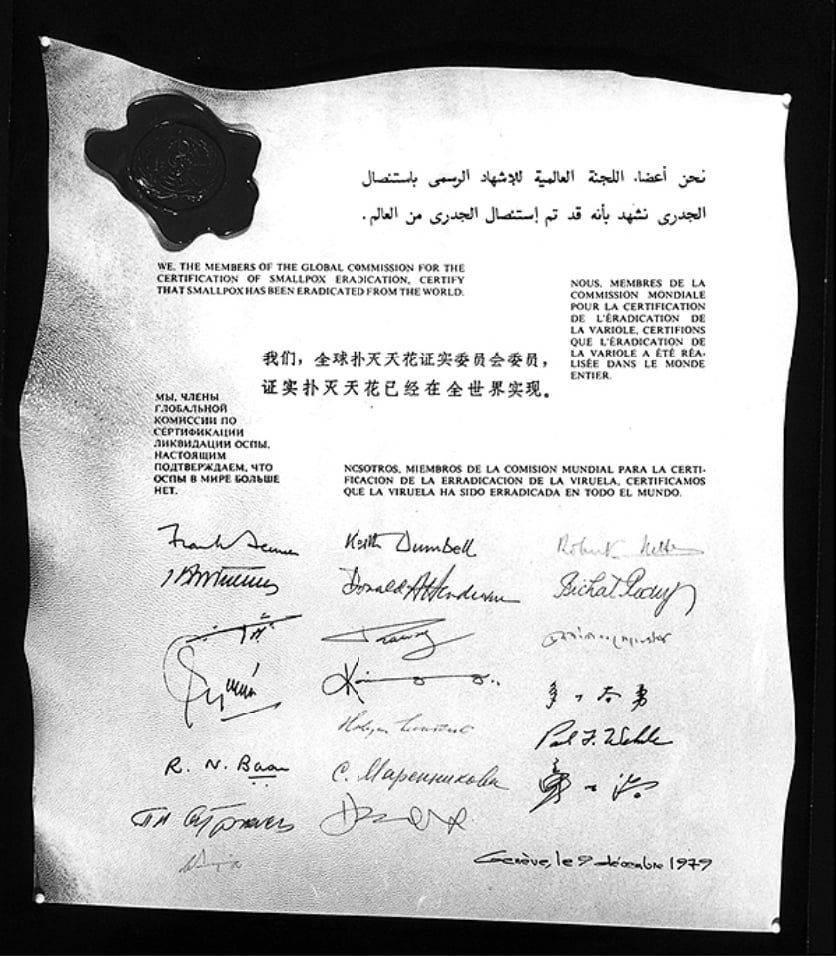 نحن أعضاء اللجنة العالمية للإشهاد الرسمى باستئصال
الجدرى نشهد بأنه قد تم إستئصال الجدرى من العالم.
WE, THE MEMBERS OF THE GLOBAL COMMISSION FOR THE
CERTIFICATION OF SMALLPOX ERADICATION, CERTIFY
THAT SMALLPOX HAS BEEN ERADICATED FROM THE WORLD.
NOUS, MEMBRES DE LA
COMMISSION MONDIALE
POUR LA CERTIFICATION
DE L'ÉRADICATION DE
LA VARIOLE, CERTIFIONS
QUE L'ÉRADICATION DE
LA VARIOLE A ÉTÉ RÉA-
LISÉE DANS LE MONDE
ENTIER.
我们，全球扑灭天花证实委员会委员，
证实扑灭天花已经在全世界实现。
МЫ, ЧЛЕНЫ
ГЛОБАЛЬНОЙ
КОМИССИИ ПО
СЕРТИФИКАЦИИ
ЛИКВИДАЦИИ ОСПЫ,
НАСТОЯЩИМ
ПОДТВЕРЖДАЕМ, ЧТО
ОСПЫ В МИРЕ БОЛЬШЕ
НЕТ.
NOSOTROS, MIEMBROS DE LA COMISION MUNDIAL PARA LA CERTI-
FICACION DE LA ERRADICACION DE LA VIRUELA, CERTIFICAMOS
QUE LA VIRUELA HA SIDO ERRADICADA EN TODO EL MUNDO.
Frank Fenner
Keith Dumbell
Robert
Donald A Henderson
Paul F. Wehrle
R. N. Basu
С. Маренникова
Genève, le 9 décembre 1979